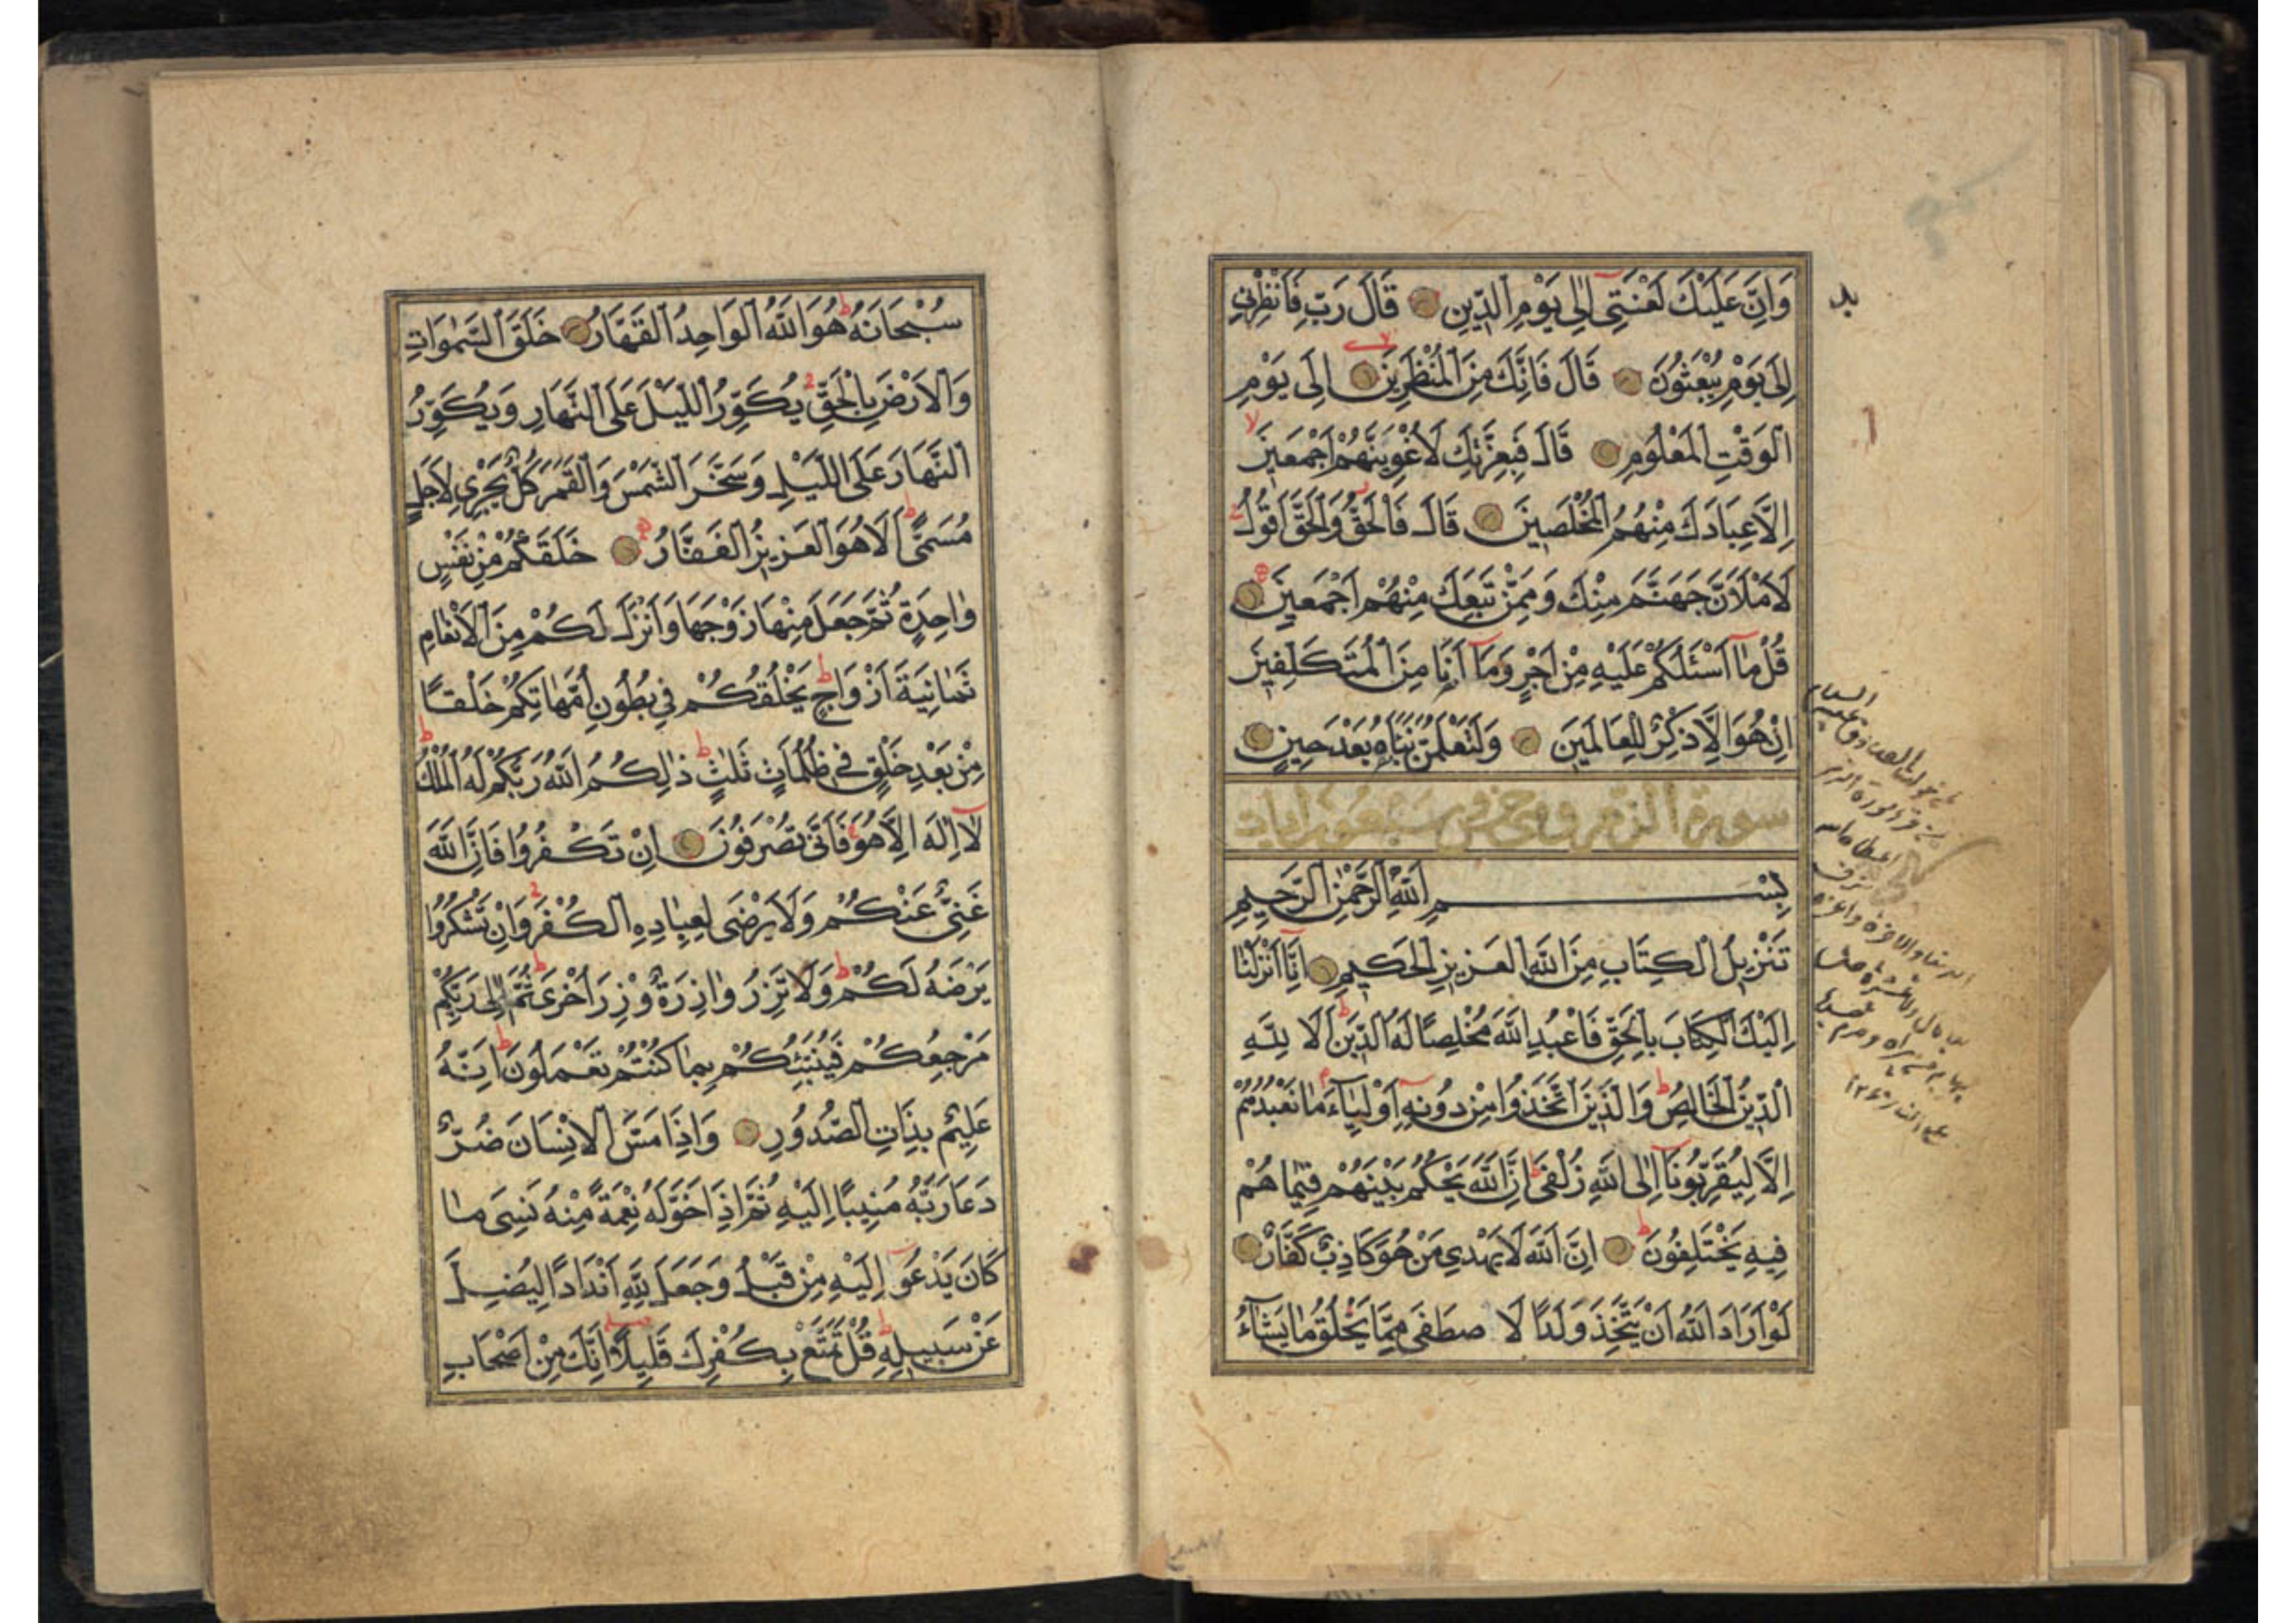 وَاِنَّ عَلَيْكَ لَعْنَتِى اِلٰى يَوْمِ الدِّينِ قَالَ رَبِّ فَاَنْظِرْنِى
اِلٰى يَوْمِ يُبْعَثُونَ قَالَ فَاِنَّكَ مِنَ الْمُنْظَرِينَ اِلٰى يَوْمِ
الْوَقْتِ الْمَعْلُومِ قَالَ فَبِعِزَّتِكَ لَاُغْوِيَنَّهُمْ اَجْمَعِينَ
اِلَّا عِبَادَكَ مِنْهُمُ الْمُخْلَصِينَ قَالَ فَالْحَقُّ وَالْحَقَّ اَقُولُ
لَاَمْلَاَنَّ جَهَنَّمَ مِنْكَ وَمِمَّنْ تَبِعَكَ مِنْهُمْ اَجْمَعِينَ
قُلْ مَا اَسْئَلُكُمْ عَلَيْهِ مِنْ اَجْرٍ وَمَا اَنَا مِنَ الْمُتَكَلِّفِينَ
اِنْ هُوَ اِلَّا ذِكْرٌ لِلْعَالَمِينَ وَلَتَعْلَمُنَّ نَبَاَهُ بَعْدَ حِينٍ
سورة الزمر وهى خمس وسبعون اٰيات
بِسْمِ اللّٰهِ الرَّحْمٰنِ الرَّحِيمِ
تَنْزِيلُ الْكِتَابِ مِنَ اللّٰهِ الْعَزِيزِ الْحَكِيمِ اِنَّا اَنْزَلْنَا
اِلَيْكَ الْكِتَابَ بِالْحَقِّ فَاعْبُدِ اللّٰهَ مُخْلِصًا لَهُ الدِّينَ اَلَا لِلّٰهِ
الدِّينُ الْخَالِصُ وَالَّذِينَ اتَّخَذُوا مِنْ دُونِهِ اَوْلِيَاءَ مَا نَعْبُدُهُمْ
اِلَّا لِيُقَرِّبُونَا اِلَى اللّٰهِ زُلْفٰى اِنَّ اللّٰهَ يَحْكُمُ بَيْنَهُمْ فِيمَا هُمْ
فِيهِ يَخْتَلِفُونَ اِنَّ اللّٰهَ لَا يَهْدِى مَنْ هُوَ كَاذِبٌ كَفَّارٌ
لَوْ اَرَادَ اللّٰهُ اَنْ يَتَّخِذَ وَلَدًا لَا صْطَفٰى مِمَّا يَخْلُقُ مَا يَشَاءُ
سُبْحَانَهُ هُوَ اللّٰهُ الْوَاحِدُ الْقَهَّارُ خَلَقَ السَّمٰوَاتِ
وَالْاَرْضَ بِالْحَقِّ يُكَوِّرُ اللَّيْلَ عَلَى النَّهَارِ وَيُكَوِّرُ
النَّهَارَ عَلَى اللَّيْلِ وَسَخَّرَ الشَّمْسَ وَالْقَمَرَ كُلٌّ يَجْرِى لِاَجَلٍ
مُسَمًّى اَلَا هُوَ الْعَزِيزُ الْغَفَّارُ خَلَقَكُمْ مِنْ نَفْسٍ
وَاحِدَةٍ ثُمَّ جَعَلَ مِنْهَا زَوْجَهَا وَاَنْزَلَ لَكُمْ مِنَ الْاَنْعَامِ
ثَمَانِيَةَ اَزْوَاجٍ يَخْلُقُكُمْ فِى بُطُونِ اُمَّهَاتِكُمْ خَلْقًا
مِنْ بَعْدِ خَلْقٍ فِى ظُلُمَاتٍ ثَلٰثٍ ذٰلِكُمُ اللّٰهُ رَبُّكُمْ لَهُ الْمُلْكُ
لَا اِلٰهَ اِلَّا هُوَ فَاَنّٰى تُصْرَفُونَ اِنْ تَكْفُرُوا فَاِنَّ اللّٰهَ
غَنِىٌّ عَنْكُمْ وَلَا يَرْضٰى لِعِبَادِهِ الْكُفْرَ وَاِنْ تَشْكُرُوا
يَرْضَهُ لَكُمْ وَلَا تَزِرُ وَازِرَةٌ وِزْرَ اُخْرٰى ثُمَّ اِلٰى رَبِّكُمْ
مَرْجِعُكُمْ فَيُنَبِّئُكُمْ بِمَا كُنْتُمْ تَعْمَلُونَ اِنَّهُ
عَلِيمٌ بِذَاتِ الصُّدُورِ وَاِذَا مَسَّ الْاِنْسَانَ ضُرٌّ
دَعَا رَبَّهُ مُنِيبًا اِلَيْهِ ثُمَّ اِذَا خَوَّلَهُ نِعْمَةً مِنْهُ نَسِىَ مَا
كَانَ يَدْعُو اِلَيْهِ مِنْ قَبْلُ وَجَعَلَ لِلّٰهِ اَنْدَادًا لِيُضِلَّ
عَنْ سَبِيلِهِ قُلْ تَمَتَّعْ بِكُفْرِكَ قَلِيلًا اِنَّكَ مِنْ اَصْحَابِ